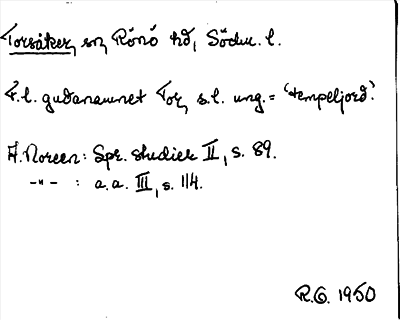 Torsåker, sn, Rönö hd, Södm. l.
F.l. gudanamnet Tor, s.l. ung. = 'tempeljord'.
A. Noreen: Spr. studier II, s. 89.
-"- : a.a. III, s. 114.
R.G. 1950